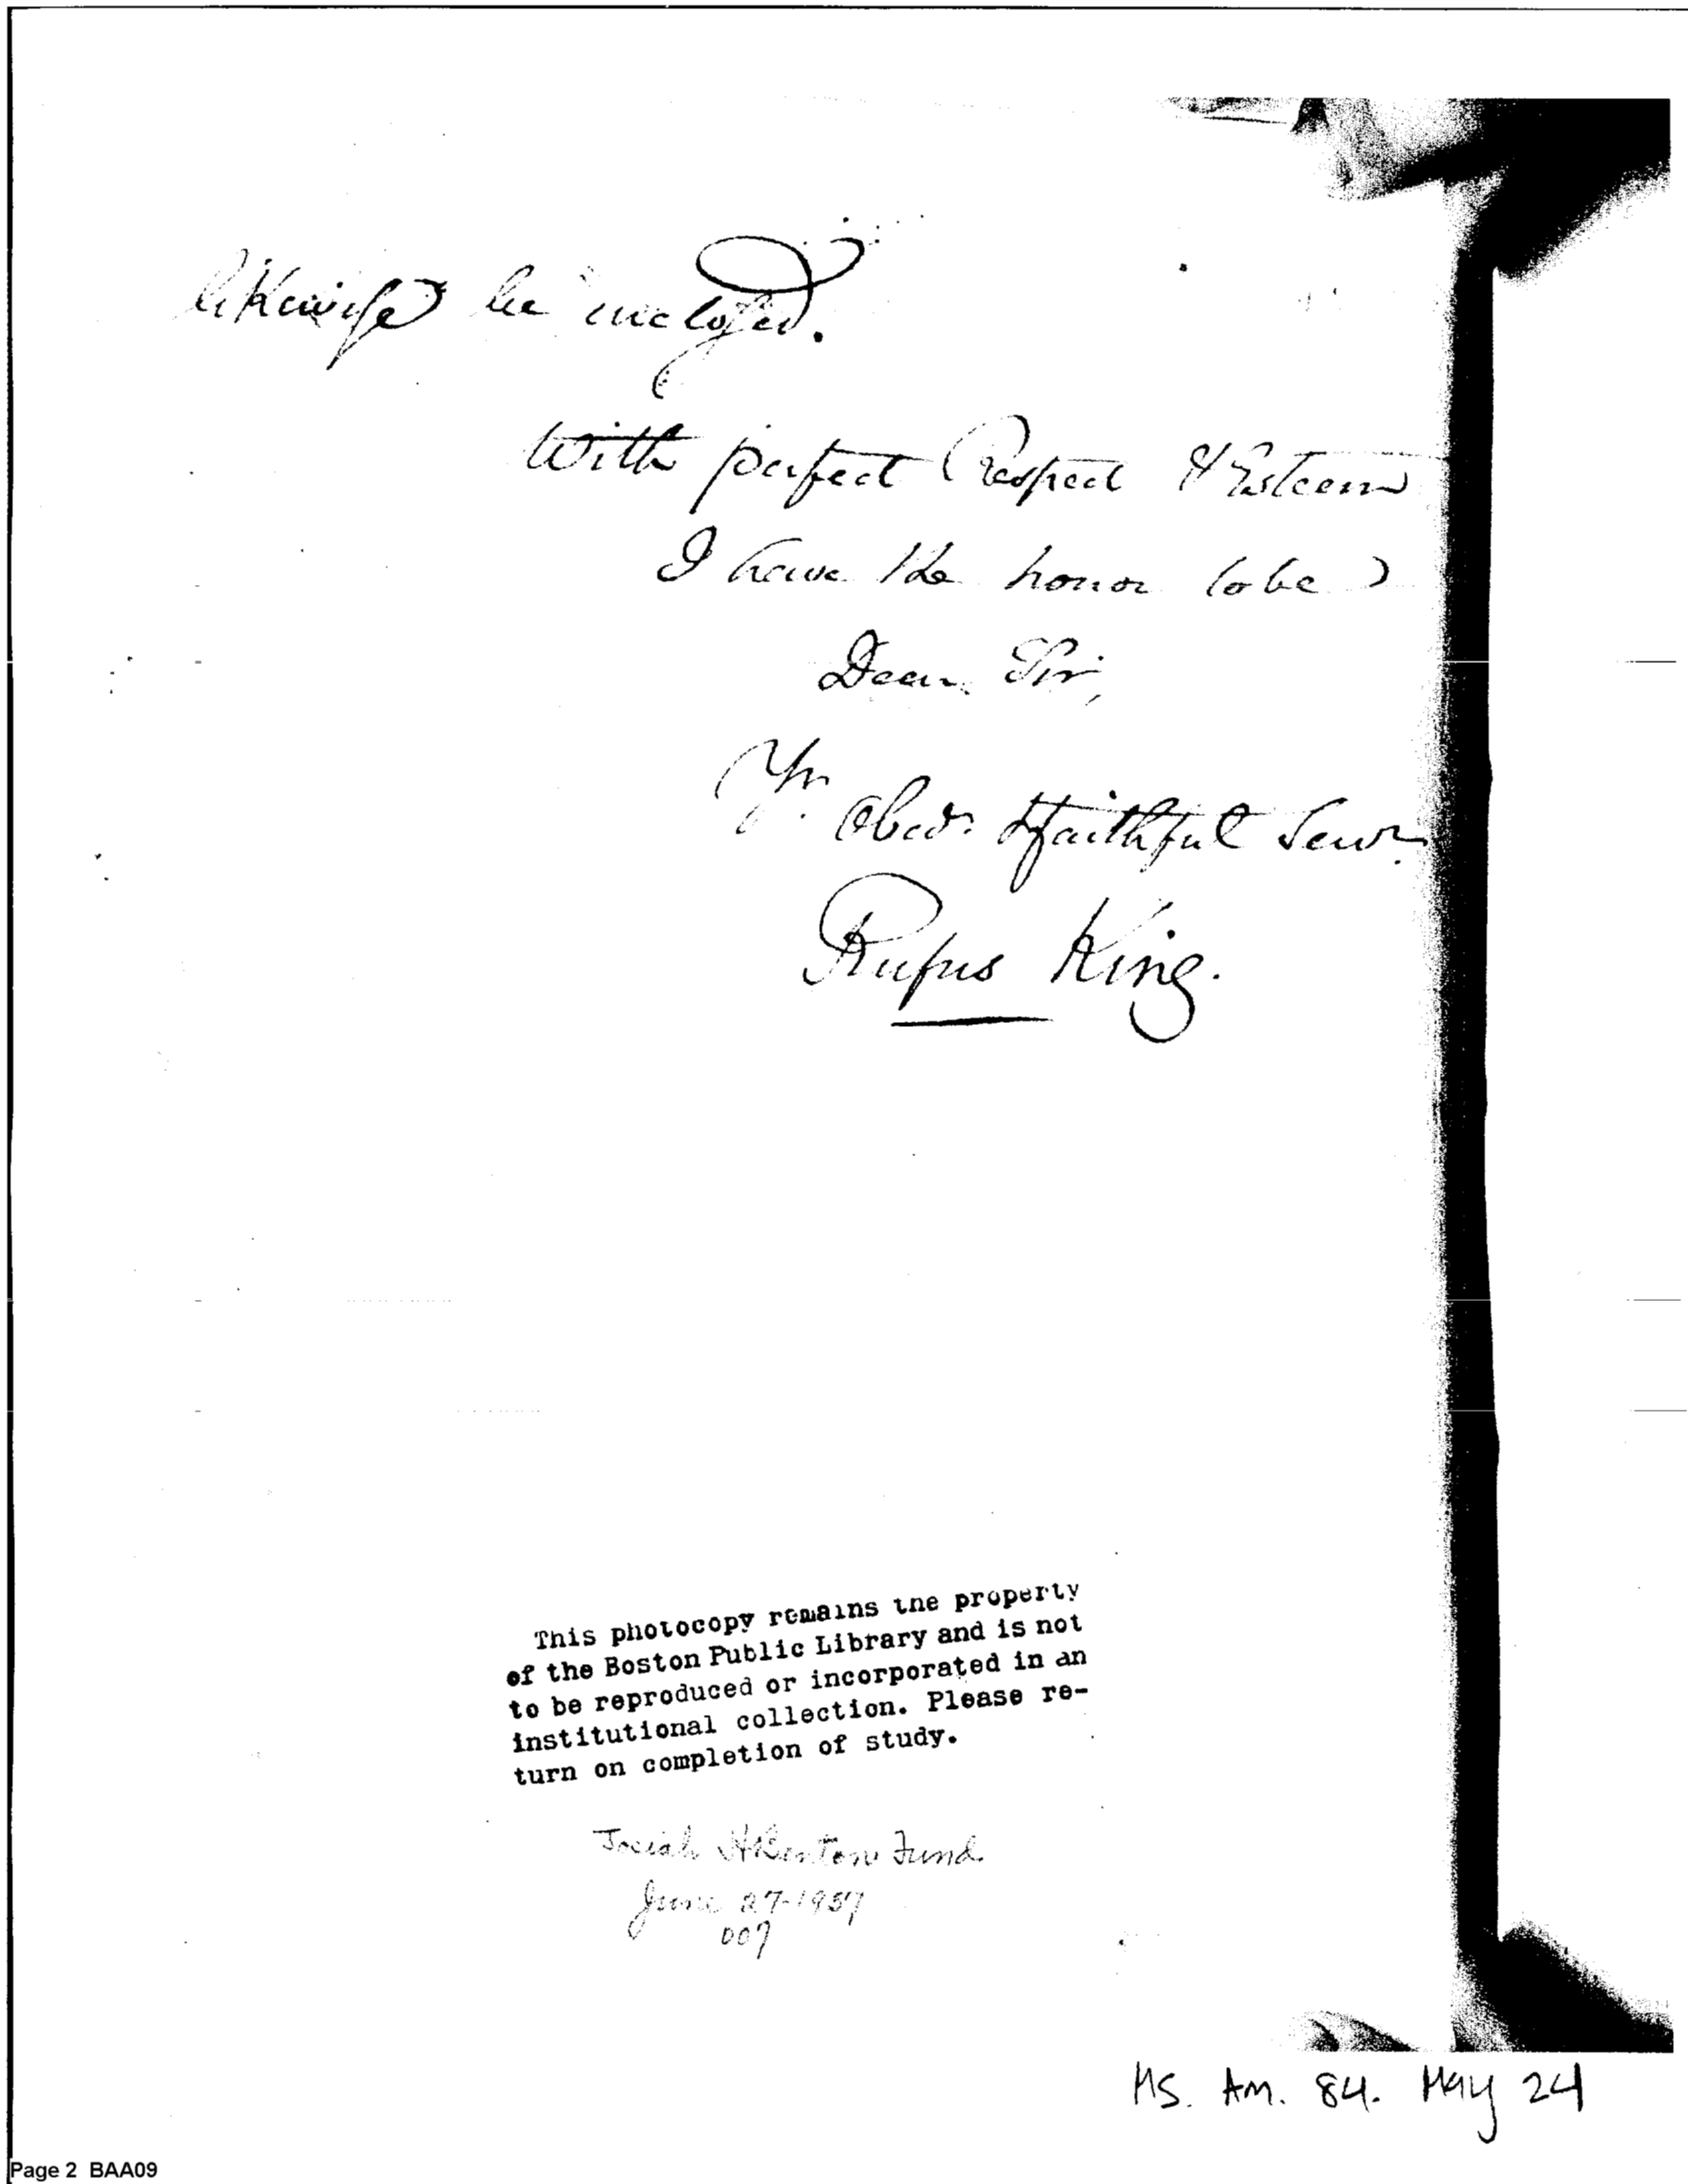 likewise be inclosed.
With perfect Respect & Esteem
I have the honor to be
Dear Sir,
Yr. Obed. & faithful Servt.
Rufus King.
This photocopy remains the property
of the Boston Public Library and is not
to be reproduced or incorporated in an
institutional collection. Please re-
turn on completion of study.
Josiah H Benton Fund
June 27-1957
007
MS. Am. 84. May 24
Page 2 BAA09